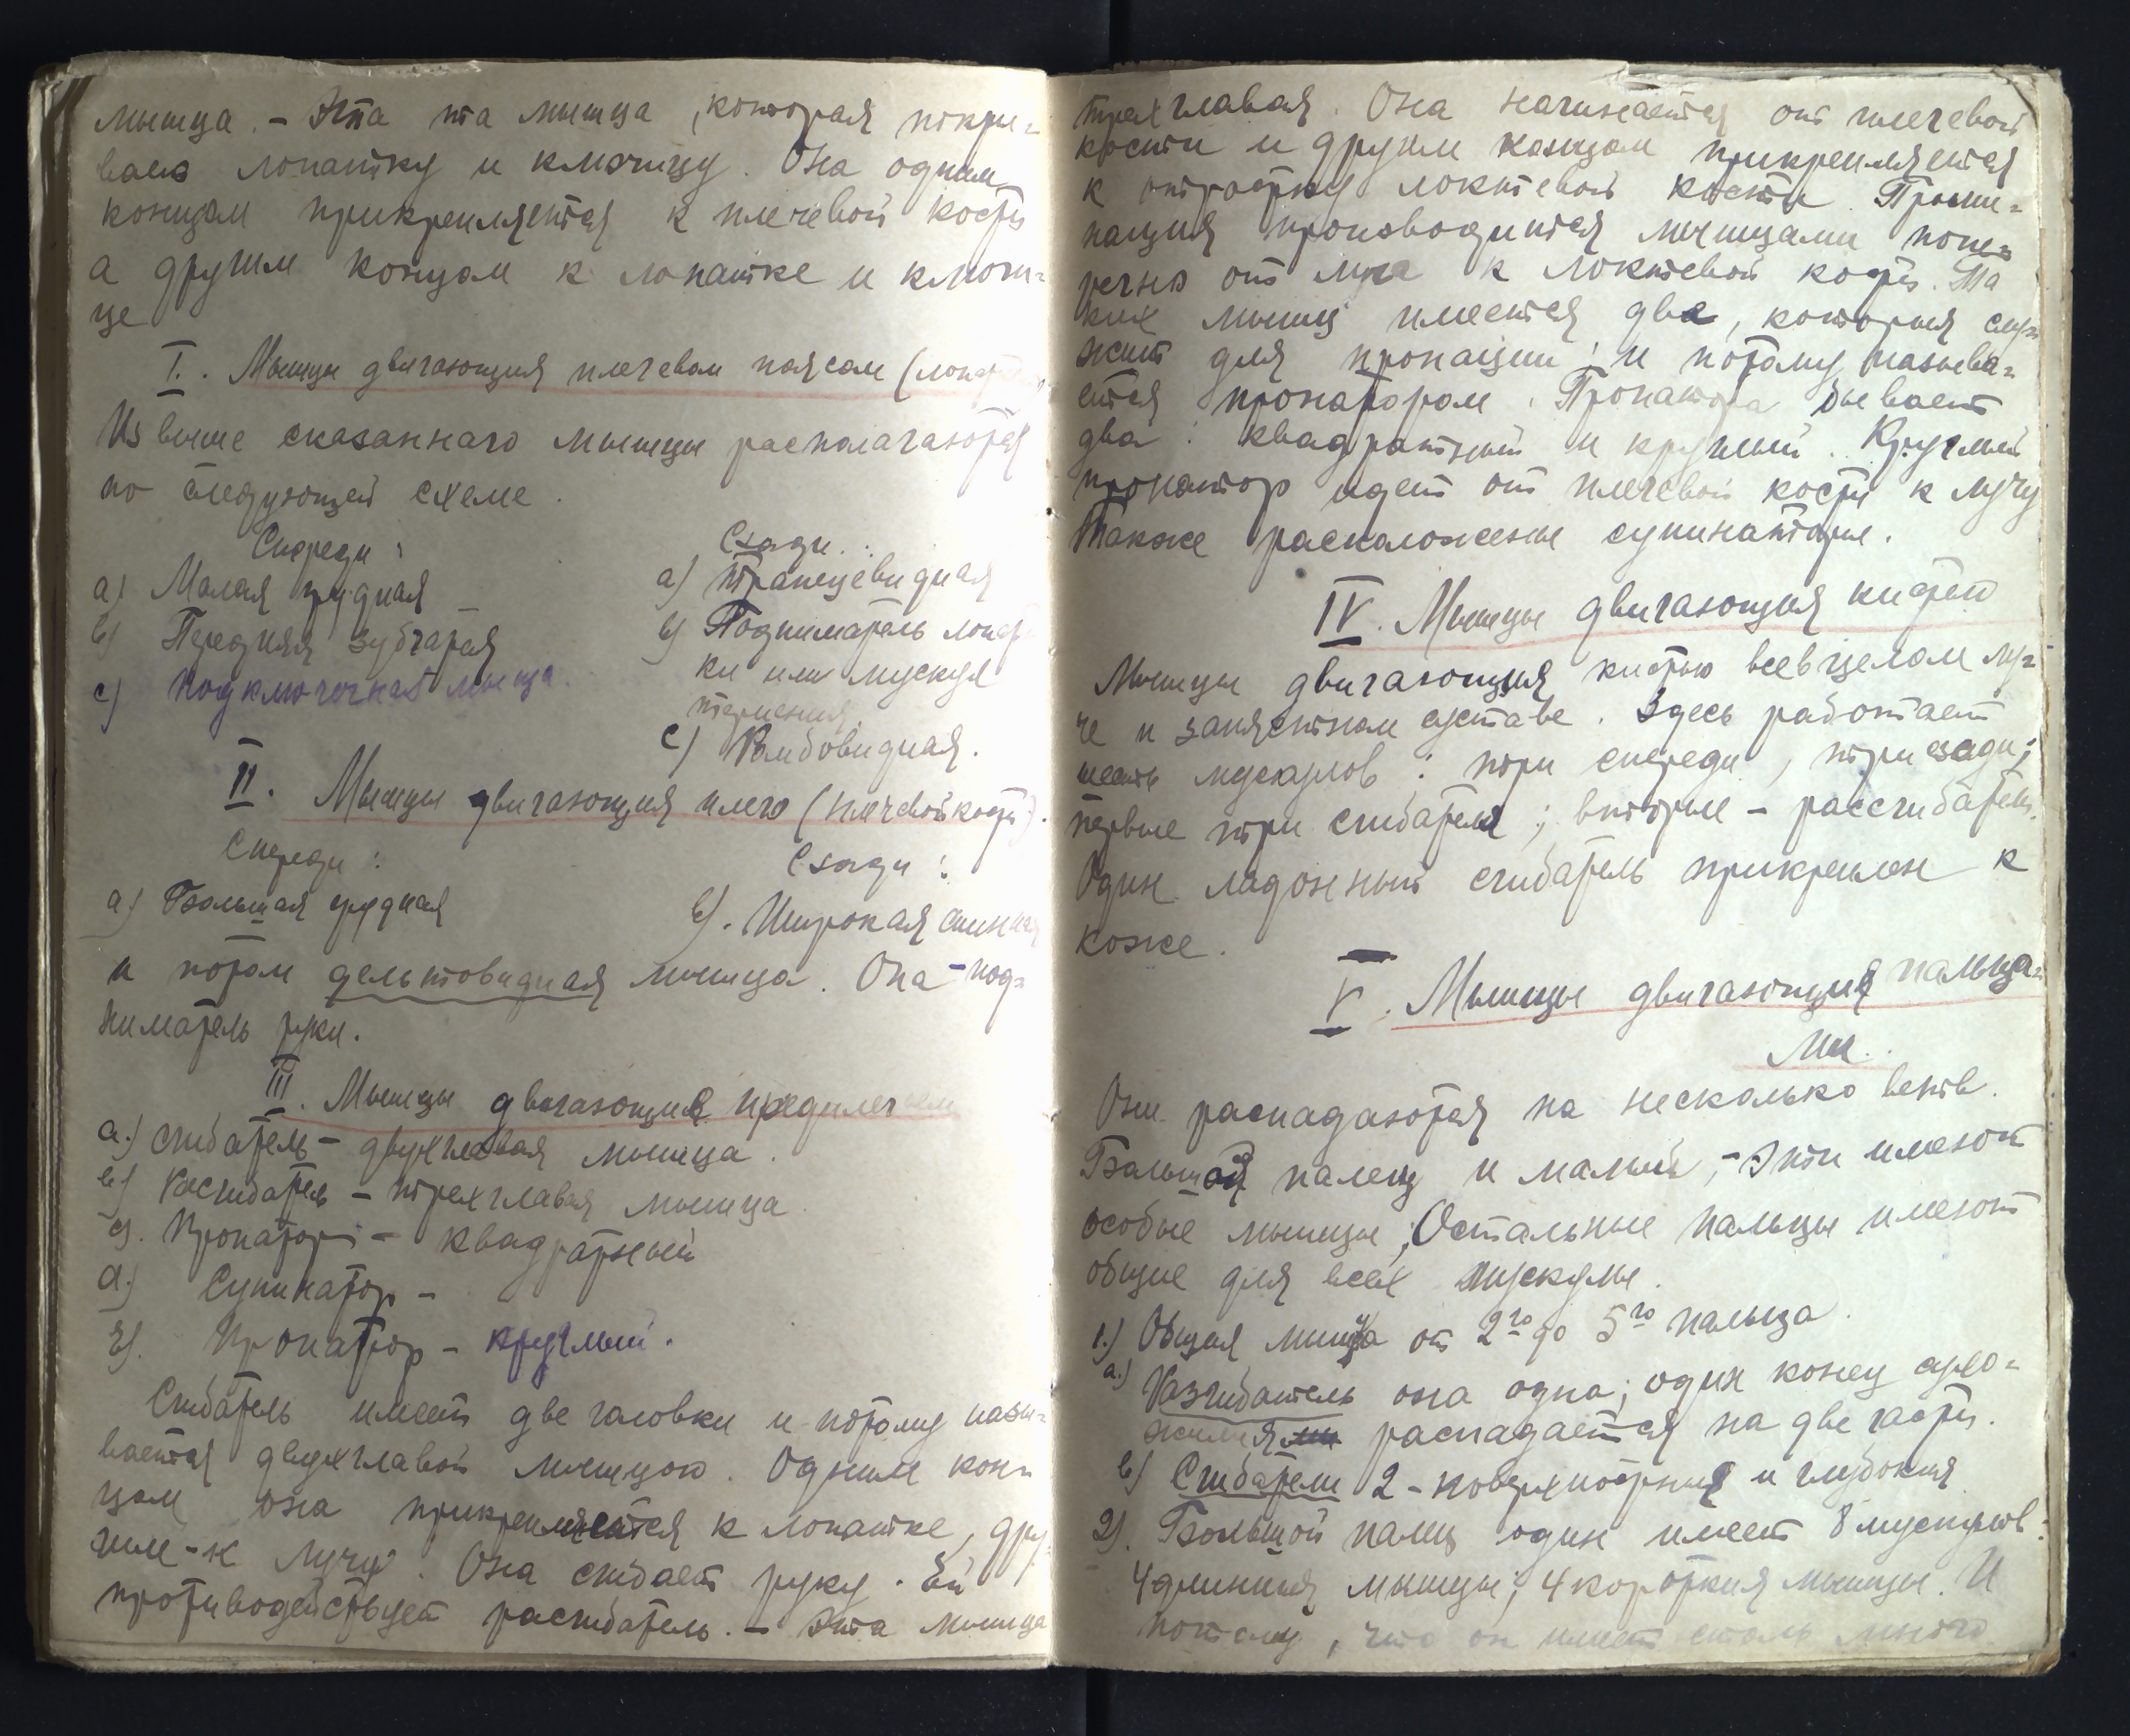 мышца. – Эта та мышца, которая покры-
вает лопатку и ключицу. Она одним
концом прикрепляется к плечевой кости
а другим концом к лопатке и ключи-
це
I. Мышцы двигающия плечевым поясом (лопатк
Из выше сказаннаго мышцы располагаются
по следующей схеме.
Спереди:
а) Малая грудная
в) Передняя зубчатая
с) подключичная мышца.
Сзади:
а) трапецевидная
в) Подниматель лопат
ки или мускул
терпения
с) Ромбовидная.
II. Мышцы двигающия плечо (плечевой кости).
Спереди:
а) Большая грудная
Сзади:
в). Широкая спинная
и потом дельтовидная мышца. Она – под-
ниматель руки.
III. Мышцы двигающие предплечьем
а.) сгибатель – двухглавая мышца.
в) Расгибатель – трехглавая мышца.
с). Пронатор – квадратный
d.) Супинатор –
Пронатор – круглый.
Сгибатель имеет две головки и потому назы-
вается двухглавой мышцою. Одним кон-
цом она прикрепляется к лопатке, дру-
гим – к лучу. Она сгибает руку. Ей
противодействует расгибатель. – Эта мышца
трехглавая. Она начинается от плечевой
кости и другим концом прикрепляется
к отростку локтевой кости. Прони-
нация производится мышцами попе-
речно от луча к локтевой кости. Та
ких мышц имеется две, которыя слу-
жит для пронации и потому называ-
ется пронатором. Пронатора бывает
два: квадратный и круглый. Круглый
пронатор идет от плечевой кости к лучу
Также расположены супинаторы.
IV. Мышцы двигающия кистью
Мышцы двигающия кистью всев целом лу-
че и запястном суставе. Здесь работает
шесть мускулов: три спереди, три сзади;
первые три сгибателя; вторые – рассгибатели.
Один ладонный сгибатель прикреплен к
коже.
V. Мышцы двигающия пальца-
ми.
Они распадаются на несколько ветв.
Большой палец и малый, – Эти имеют
особые мышцы; Остальные пальцы имеют
общие для всех мускулы.
1.) Общая мышца от 2го до 5го пальца.
а.) Разгибатель она одна; один конец сухо-
жилия распадается на две части.
в) Сгибатели 2 – поверхностныя и глубокия
2). Большой палец один имеет 8 мускулов:
4 длинныя мышцы; 4 короткия мышцы. И
потому, что он имеет столь много